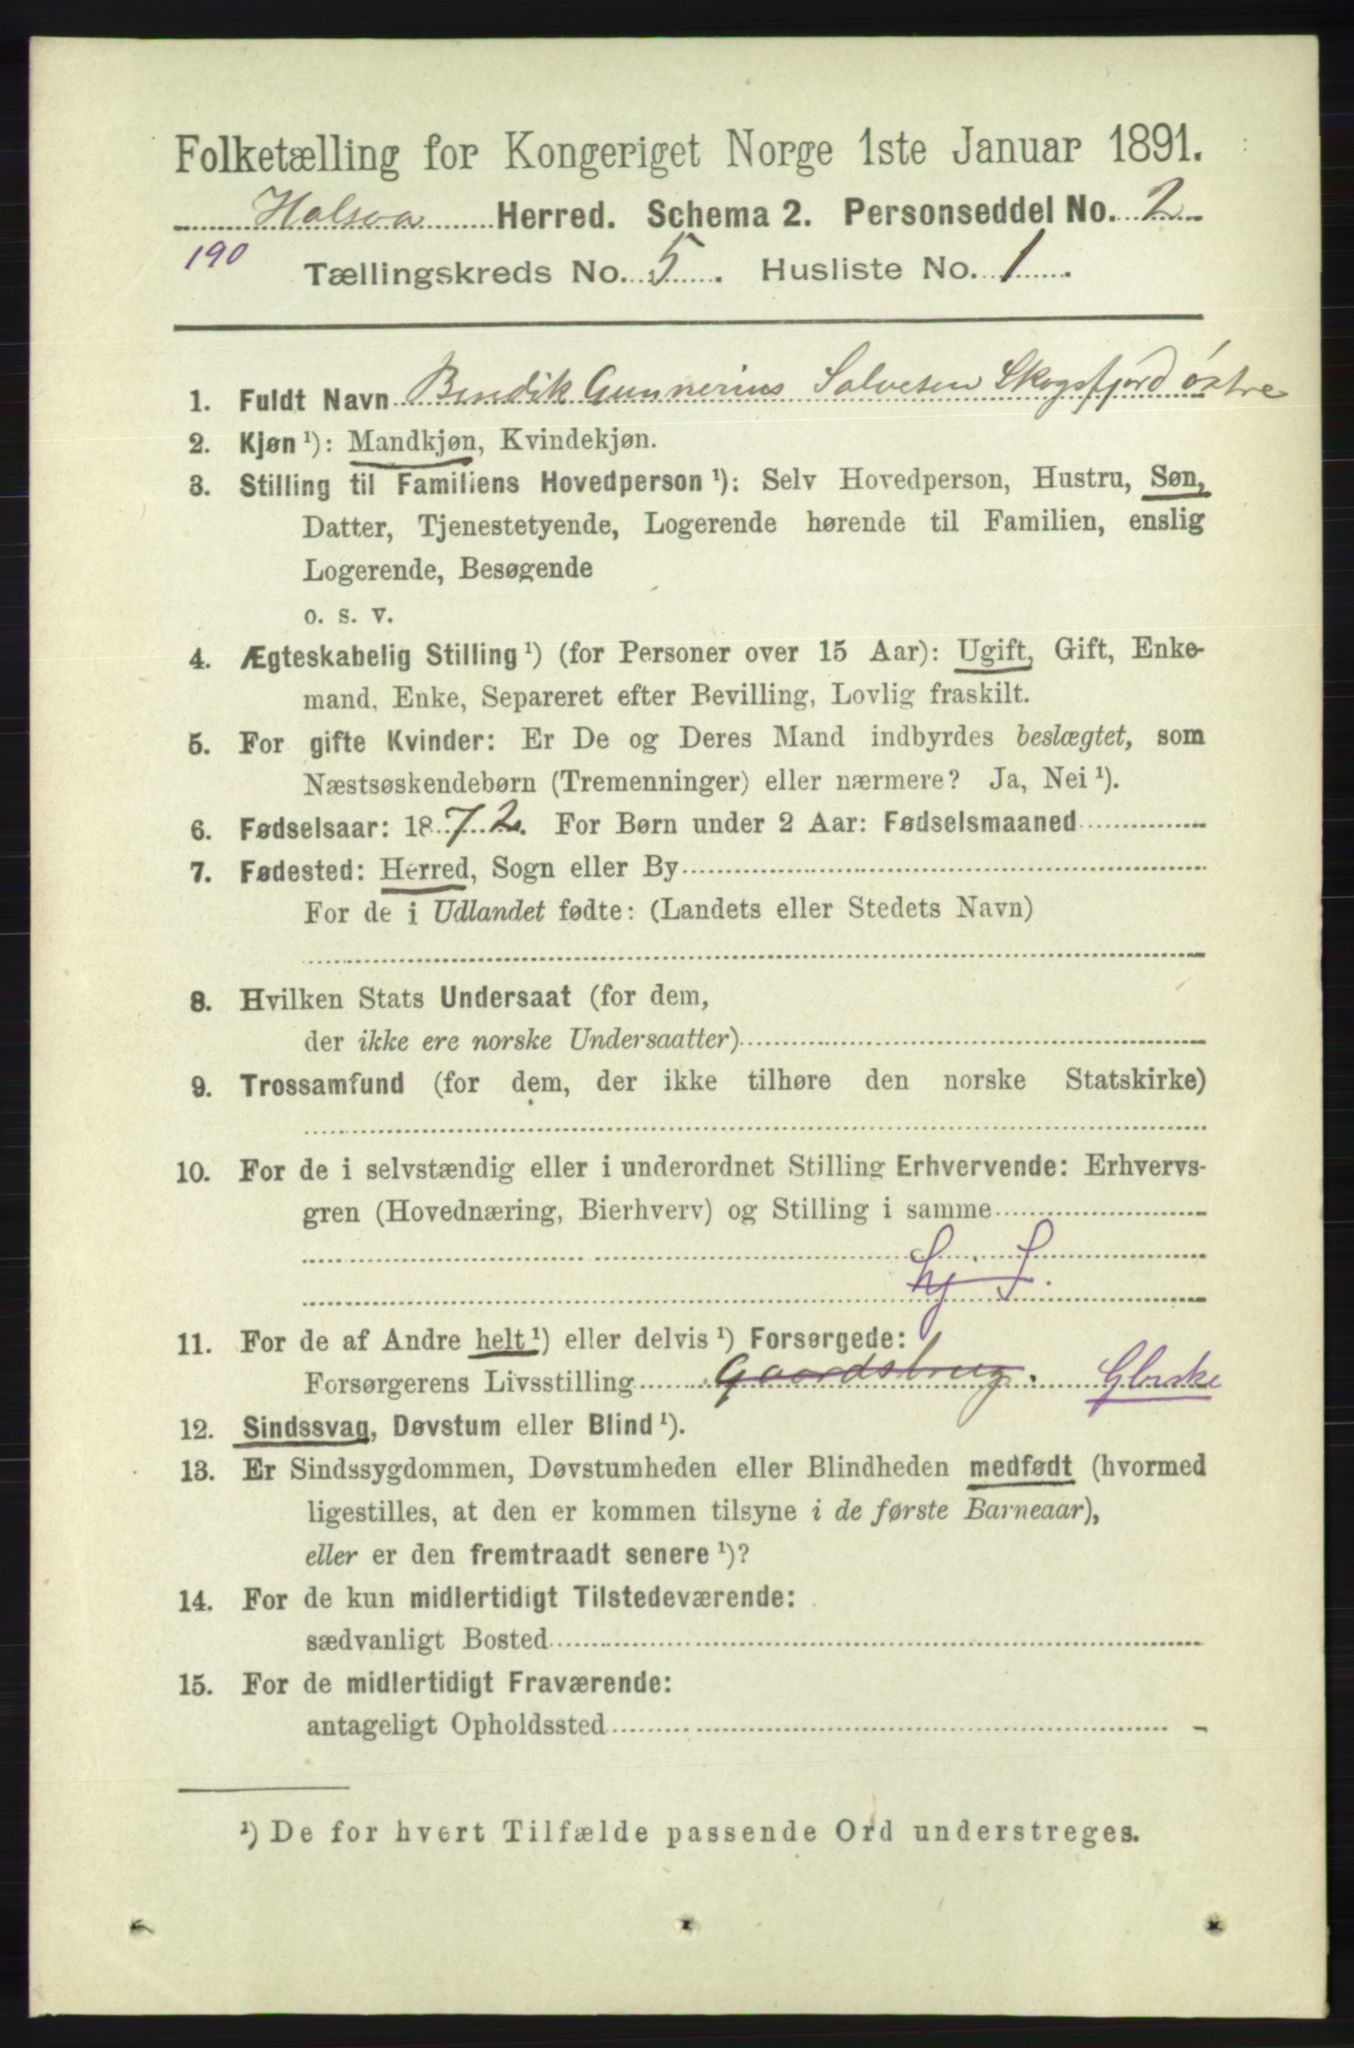 Folketælling for Kongeriget Norge 1ste Januar 1891.
Halsaa Herred. Schema 2. Personseddel No. 2
190
Tællingskreds No. 5. Husliste No. 1.
1. Fuldt Navn Bendik Gunnerius Salvesen Skogsfjord østre
2. Kjøn ¹): Mandkjøn, Kvindekjøn.
3. Stilling til Familiens Hovedperson ¹): Selv Hovedperson, Hustru, Søn,
Datter, Tjenestetyende, Logerende hørende til Familien, enslig
Logerende, Besøgende
o. s. v.
4. Ægteskabelig Stilling ¹) (for Personer over 15 Aar): Ugift, Gift, Enke-
mand, Enke, Separeret efter Bevilling, Lovlig fraskilt.
5. For gifte Kvinder: Er De og Deres Mand indbyrdes beslægtet, som
Næstsøskendebørn (Tremenninger) eller nærmere? Ja, Nei ¹).
6. Fødselsaar: 1872. For Børn under 2 Aar: Fødselsmaaned
7. Fødested: Herred, Sogn eller By
For de i Udlandet fødte: (Landets eller Stedets Navn)
8. Hvilken Stats Undersaat (for dem,
der ikke ere norske Undersaatter)
9. Trossamfund (for dem, der ikke tilhøre den norske Statskirke)
10. For de i selvstændig eller i underordnet Stilling Erhvervende: Erhvervs-
gren (Hovednæring, Bierhverv) og Stilling i samme
11. For de af Andre helt ¹) eller delvis ¹) Forsørgede:
Forsørgerens Livsstilling Gaardsbrug.
12. Sindssvag, Døvstum eller Blind ¹).
13. Er Sindssygdommen, Døvstumheden eller Blindheden medfødt (hvormed
ligestilles, at den er kommen tilsyne i de første Barneaar),
eller er den fremtraadt senere ¹)?
14. For de kun midlertidigt Tilstedeværende:
sædvanligt Bosted
15. For de midlertidigt Fraværende:
antageligt Opholdssted
¹) De for hvert Tilfælde passende Ord understreges.